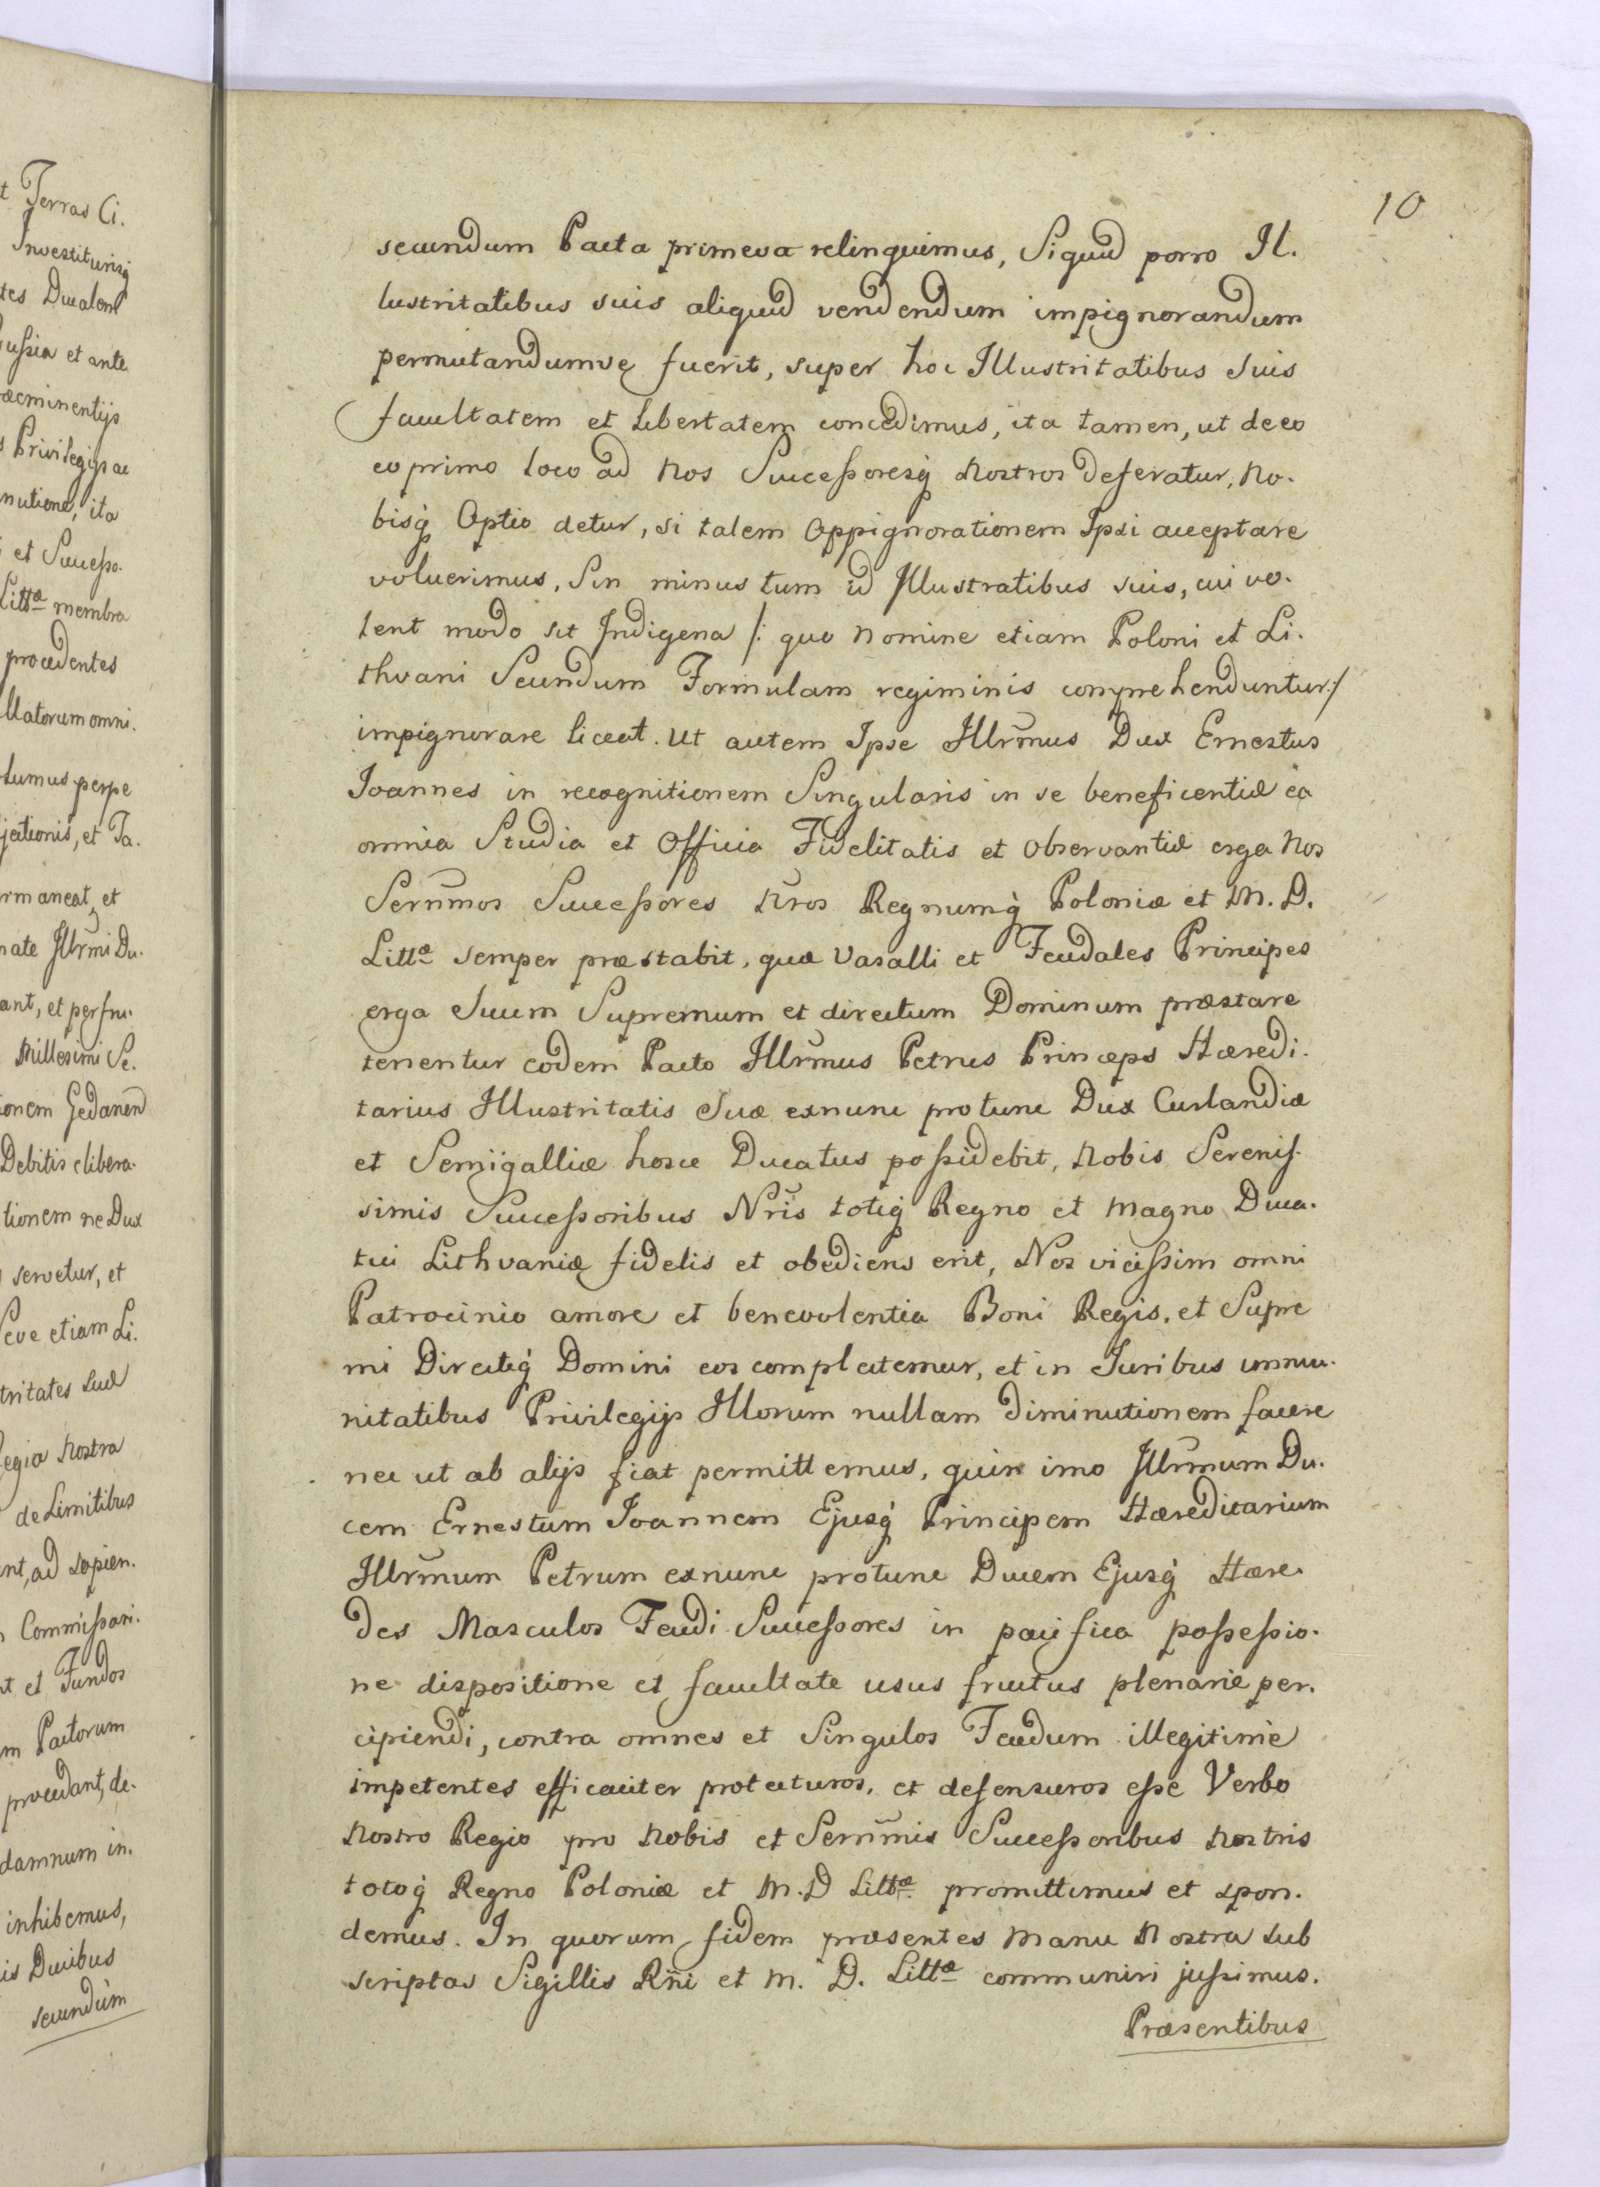 t Terras Ci.
Investiturisq
tes Ducalem
ussia et ante
æeminentijs
s Privilegijs ac
nutione, ita
et Successo.
Littæ membra
procedentes
llatorum omni.
lumus perpe
jectionis, et Ta.
rmaneat, et
nate Illrmi Du.
ant, et perfru.
Millesimi Se.
ionem Gedanen
Debitis elibera.
tionem ne Dux
servetur, et
Seve etiam Li.
tritates Suæ
egia Nostra
de Limitibus
nt, ad sopien.
Commissari.
t et Fundos
m Pactorum
procedant, de.
damnum in.
inhibemus,
is Ducibus
secundùm
10
secundum Pacta primeva relinquimus, Siquid porro Il.
lustritatibus suis aliquid vendendum impignorandum
permutandumve fuerit, super hoc Illustritatibus Suis
facultatem et libertatem concedimus, ita tamen, ut de eo
eo primo loco ad Nos Successoresq Nostros deferatur, No.
bisq Optio detur, si talem Oppignorationem Ipsi acceptare
voluerimus, Sin minus tum id Illustratibus suis, cui vo.
lent modo sit Indigena /: quo Nomine etiam Poloni et Li.
thvani Secundum Formulam regiminis comprehenduntur:/
impignorare liceat. Ut autem Ipse Illrm̃us Dux Ernestus
Joannes in recognitionem Singularis in se beneficentiæ ea
omnia Studia et Officia Fidelitatis et Observantiæ erga Nos
Sernm̃os Successores Nr̃os Regnumq Poloniæ et M. D.
Littæ semper præstabit, quæ Vasalli et Feudales Principes
erga Suum Supremum et directum Dominum præstare
tenentur eodem Pacto Illrm̃us Petrus Princeps Hæredi.
tarius Illustritatis Suæ exnunc protunc Dux Curlandiæ
et Semigalliæ hosce Ducatus possidebit, Nobis Serenis.
simis Successoribus Nr̃is totiq Regno et Magno Duca.
tui Lithvaniæ fidelis et obediens erit, Nos vicissim omni
Patrocinio amore et benevolentia Boni Regis, et Supre
mi Directiq Domini eos complectemur, et in Juribus immu.
nitatibus Privilegijs Illorum nullam diminutionem facere
nec ut ab alijs fiat permittemus, quin imo Illrm̃um Du.
cem Ernestum Joannem Ejusq Principem Hæreditarium
Illrm̃um Petrum exnunc protunc Ducem Ejusq Hære.
des Masculos Feudi Successores in pacifica possessio.
ne dispositione et facultate usus fructus plenarie per.
cipiendi, contra omnes et Singulos Feudum illegitimè
impetentes efficaciter protecturos, et defensuros esse Verbo
Nostro Regio pro Nobis et Sernm̃is Successoribus Nostris
totoq Regno Poloniæ et M. D Littæ promittimus et spon.
demus. In quorum fidem præsentes Manu Nostra sub
scriptas Sigillis Rñi et M. D. Littæ communiri jussimus.
Præsentibus